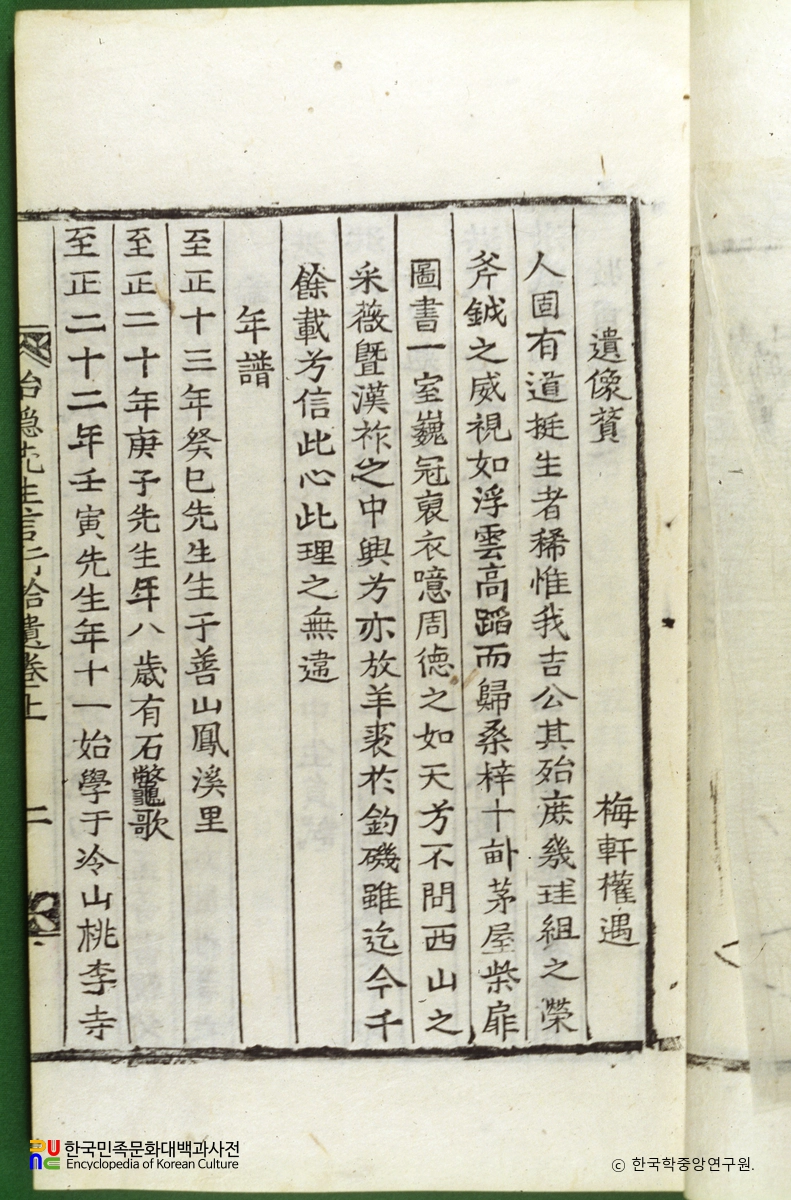 遺像賛 梅軒權遇
人固有道挺生者稀惟我吉公其殆庶幾珪組之榮
斧鉞之威視如浮雲高蹈而歸桑梓十畝茅屋柴扉
圖書一室巍冠裒衣噫周德之如天兮不問西山之
采薇曁漢祚之中興兮亦放羊裘於釣磯雖迄今千
餘載兮信此心此理之無違
年譜
至正十三年癸巳先生生于善山鳳溪里
至正二十年庚子先生年八歲有石鼈歌
至正二十二年壬寅先生年十一始學于冷山桃李寺
冶隱先生言行拾遺卷上 二
한국민족문화대백과사전
Encyclopedia of Korean Culture
ⓒ 한국학중앙연구원.